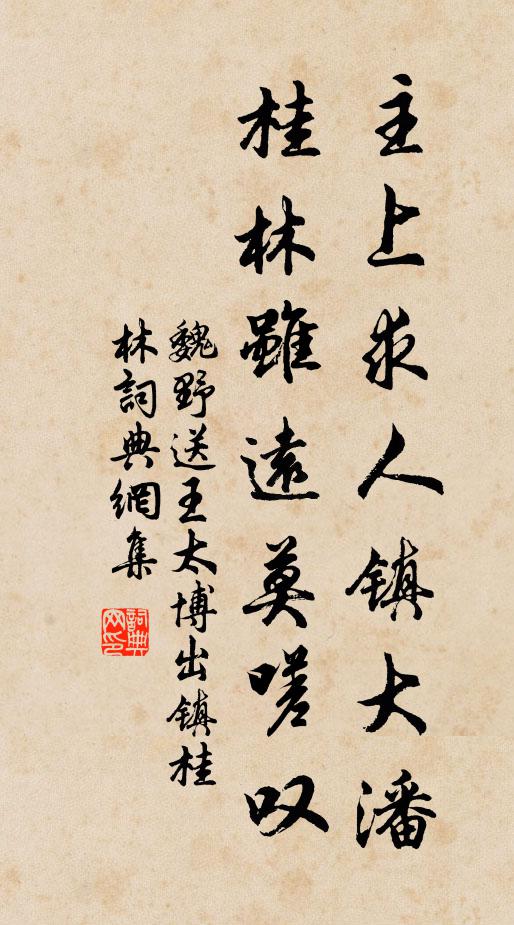 主上求人镇大潘
桂林雖遠莫嗟叹
魏野送王太博出镇桂
林詞典網集
詞典网印